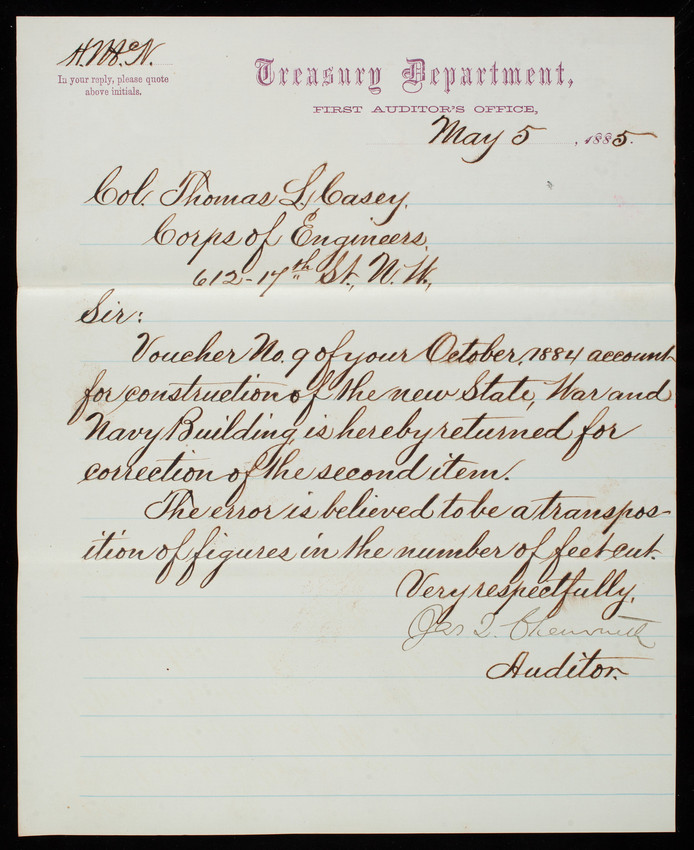 H.McN.
In your reply, please quote
above initials.
Treasury Department,
FIRST AUDITOR'S OFFICE,
May 5, 1885.
Col. Thomas L. Casey,
Corps of Engineers,
612-17th St., N.W.,
Sir:
Voucher No. 9 of your October, 1884 account
for construction of the new State, War and
Navy Building, is hereby returned for
correction of the second item.
The error is believed to be a transpos-
ition of figures in the number of feet cut.
Very respectfully,
Jas Q. Chenoweth
Auditor.